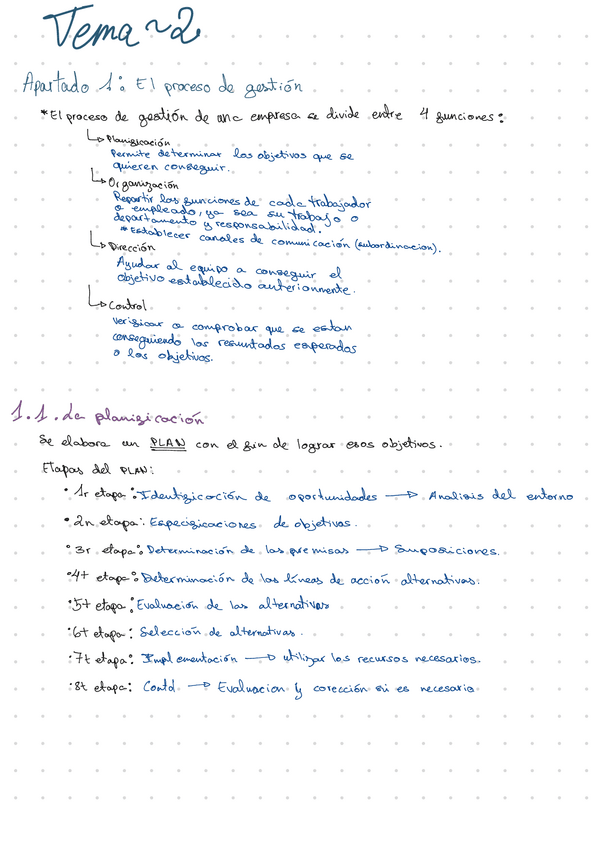 Tema ~ 2
Apartado 1: El proceso de gestión
* El proceso de gestión de una empresa se divide entre 4 funciones:
↳ Planificación
Permite determinar los objetivos que se
quieren conseguir.
↳ Organización
Repartir las funciones de cada trabajador
o empleado, ya sea su trabajo o
departamento y responsabilidad.
* Establecer canales de comunicación (subordinacion).
↳ Dirección
Ayudar al equipo a conseguir el
objetivo establecido anteriormente.
↳ Control
verificar o comprobar que se estan
consiguiendo los resultados esperados
o los objetivos.
1.1. La planificación
Se elabora un PLAN con el fin de lograr esos objetivos.
Etapas del PLAN:
• 1r etapa: Identificación de oportunidades → Analisis del entorno
• 2n etapa: Especificaciones de objetivos.
• 3r etapa: Determinación de las premisas → Suposiciones.
• 4t etapa: Determinación de las líneas de acción alternativas.
• 5t etapa: Evaluación de las alternativas
• 6t etapa: Selección de alternativas.
• 7t etapa: Implementación → utilizar los recursos necesarios.
• 8t etapa: Contol → Evaluacion y coreción si es necesario